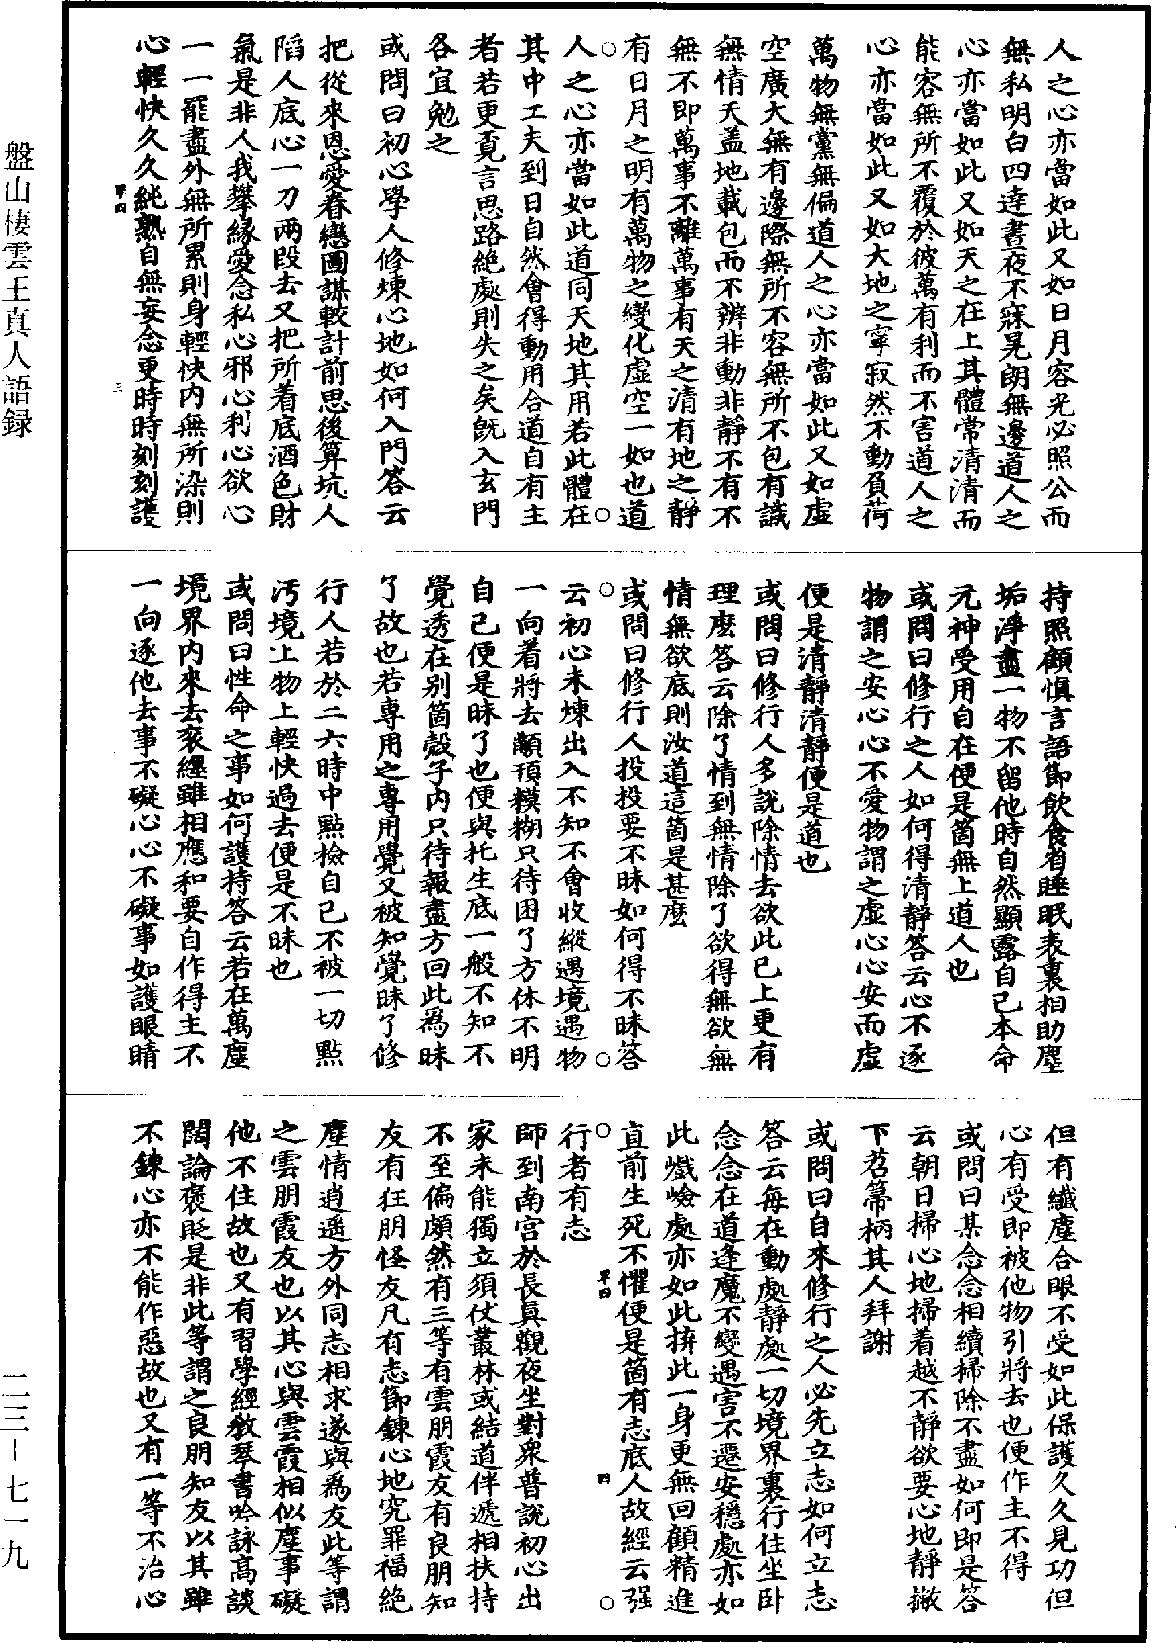 人之心亦當如此又如日月容光必照公而
無私明白四達晝夜不寐晃朗無邊道人之
心亦當如此又如天之在上其體常清清而
能容無所不覆於彼萬有利而不害道人之
心亦當如此又如大地之寧寂然不動負荷
萬物無黨無偏道人之心亦當如此又如虛
空廣大無有邊際無所不容無所不包有識
無情天蓋地載包而不辨非動非靜不有不
無不即萬事不離萬事有天之清有地之靜
有日月之明有萬物之變化虛空一如也道
人之心亦當如此道同天地其用若此體在
其中工夫到日自然會得動用合道自有主
者若更覓言思路絕處則失之矣既入玄門
各宜勉之
或問曰初心學人修煉心地如何入門答云
把從來恩愛眷戀圖謀較計前思後算坑人
陷人底心一刀兩段去又把所着底酒色財
氣是非人我攀緣愛念私心邪心利心欲心
一一罷盡外無所累則身輕快內無所染則
心輕快久久純熟自無妄念更時時刻刻護
持照顧慎言語節飲食省睡眠表裏相助塵
垢淨盡一物不留他時自然顯露自己本命
元神受用自在便是箇無上道人也
或問曰修行之人如何得清靜答云心不逐
物謂之安心心不愛物謂之虛心心安而虛
便是清靜清靜便是道也
或問曰修行人多說除情去欲此已上更有
理麽答云除了情到無情除了欲得無欲無
情無欲底則汝道這箇是甚麽
或問曰修行人投投要不昧如何得不昧答
云初心未煉出入不知不會收縱遇境遇物
一向着將去顢頇糢糊只待困了方休不明
自己便是昧了也便與托生底一般不知不
覺透在別箇殼子內只待報盡方回此為昧
了故也若專用之專用覺又被知覺昧了修
行人若於二六時中點檢自己不被一切點
污境上物上輕快過去便是不昧也
或問曰性命之事如何護持答云若在萬塵
境界內來去衮纏雖相應和要自作得主不
一向逐他去事不礙心心不礙事如護眼睛
但有纖塵合眼不受如此保護久久見功但
心有受即被他物引將去也便作主不得
或問曰某念念相續掃除不盡如何即是答
云朝日掃心地掃着越不靜欲要心地靜撇
下苕箒柄其人拜謝
或問曰自來修行之人必先立志如何立志
答云每在動處靜處一切境界裏行住坐臥
念念在道逢魔不變遇害不遷安穩處亦如
此巇嶮處亦如此拚此一身更無回顧精進
直前生死不懼便是箇有志底人故經云强
行者有志
師到南宮於長真觀夜坐對衆普說初心出
家未能獨立須仗叢林或結道伴遞相扶持
不至偏頗然有三等有雲朋霞友有良朋知
友有狂朋怪友凡有志節鍊心地究罪福絕
塵情逍遥方外同志相求遂與為友此等謂
之雲朋霞友也以其心與雲霞相似塵事礙
他不住故也又有習學經教琴書吟詠高談
闊論褒貶是非此等謂之良朋知友以其雖
不鍊心亦不能作惡故也又有一等不治心
盤山棲雲王真人語録
三
四
二三－七一九